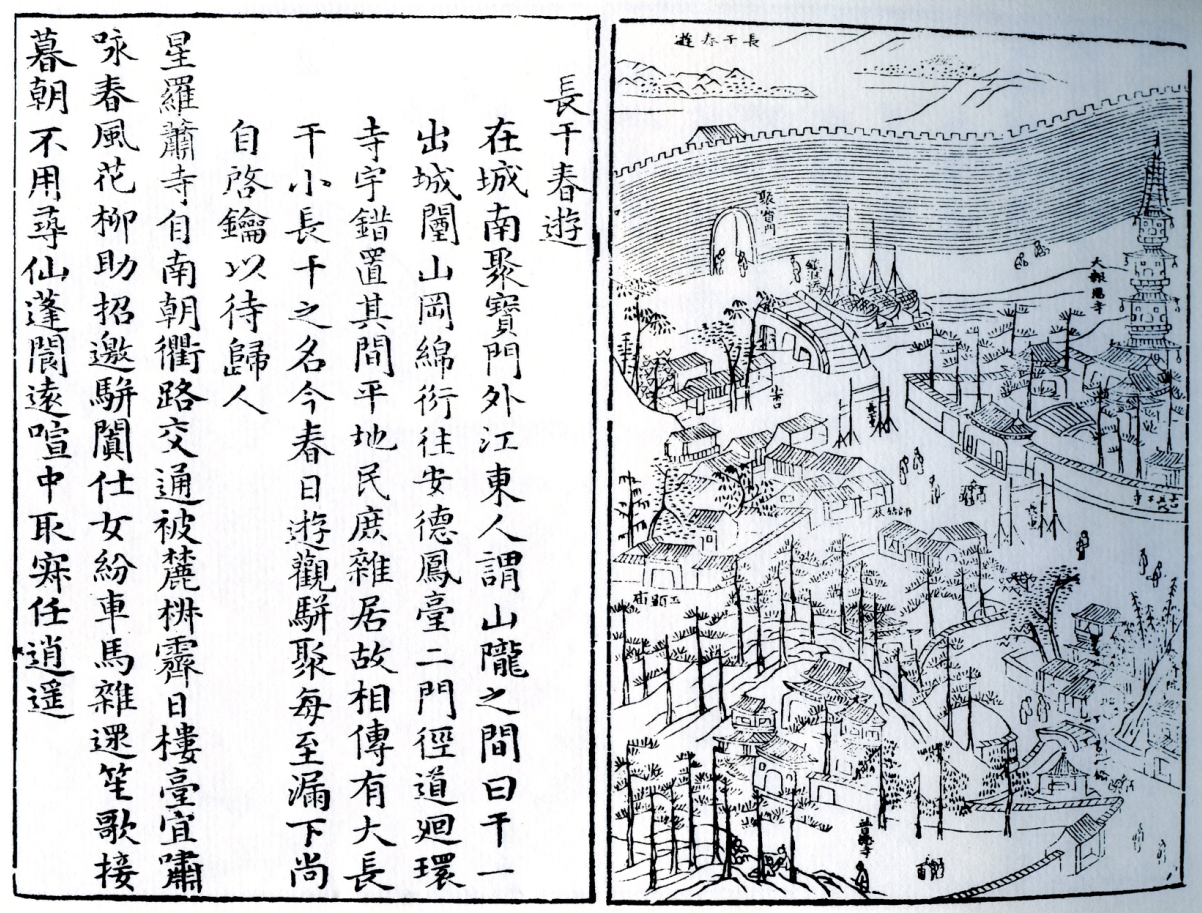 長干春遊
聚寶門
大報恩寺
長干春遊
在城南聚寶門外江東人謂山隴之間曰干一
出城闉山岡綿衍往安德鳳臺二門徑道廻環
寺宇錯置其間平地民庶雜居故相傳有大長
干小長干之名今春日遊觀駢聚每至漏下尚
自啓鑰以待歸人
星羅蕭寺自南朝衢路交通被麓椒霽日樓臺宜嘯
咏春風花柳助招邀駢闐仕女紛車馬雜遝笙歌接
暮朝不用尋仙蓬閬遠喧中取寂任逍遥